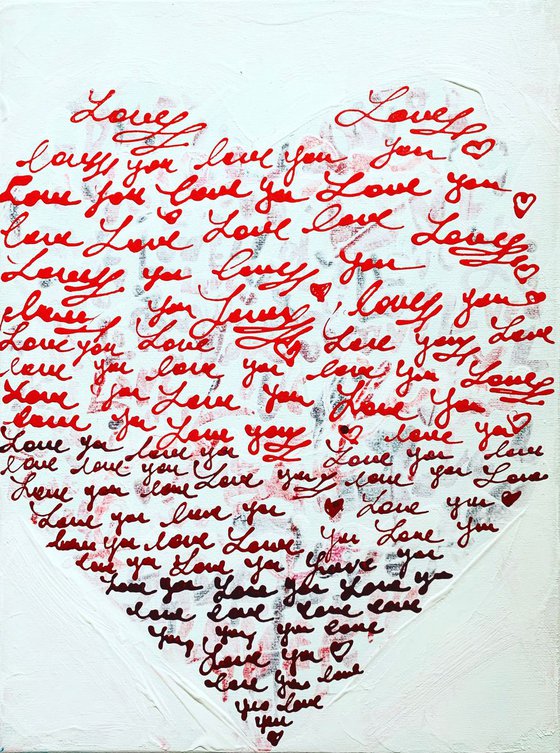 Love Love
love you love you you
Love you love you Love you
love Love Love love Love
Love you love you
love you Love love you
Love you Love Love you Love
love you love you love you Love
Love you Love you Love you
love you Love you love you
Love you love you Love you love
love love you love Love you love you Love
Love you love you Love you
Love you love you
love you love Love you Love you
love you Love you Love you
Love you Love you Love you
love love love love
you, you, you love
Love you
love you love
you love
you